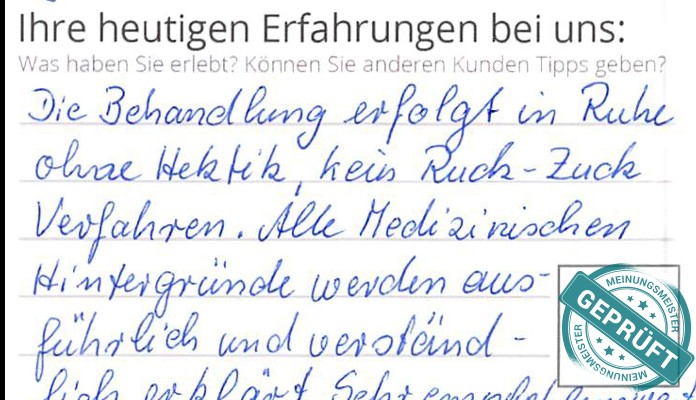 Ihre heutigen Erfahrungen bei uns:
Was haben Sie erlebt? Können Sie anderen Kunden Tipps geben?
Die Behandlung erfolgt in Ruhe
ohne Hektik, kein Ruck-Zuck
Verfahren. Alle Medizinischen
Hintergründe werden aus-
führlich und verständ-
lich erklärt Sehr
MEINUNGSMEISTER
GEPRÜFT
MEINUNGSMEISTER